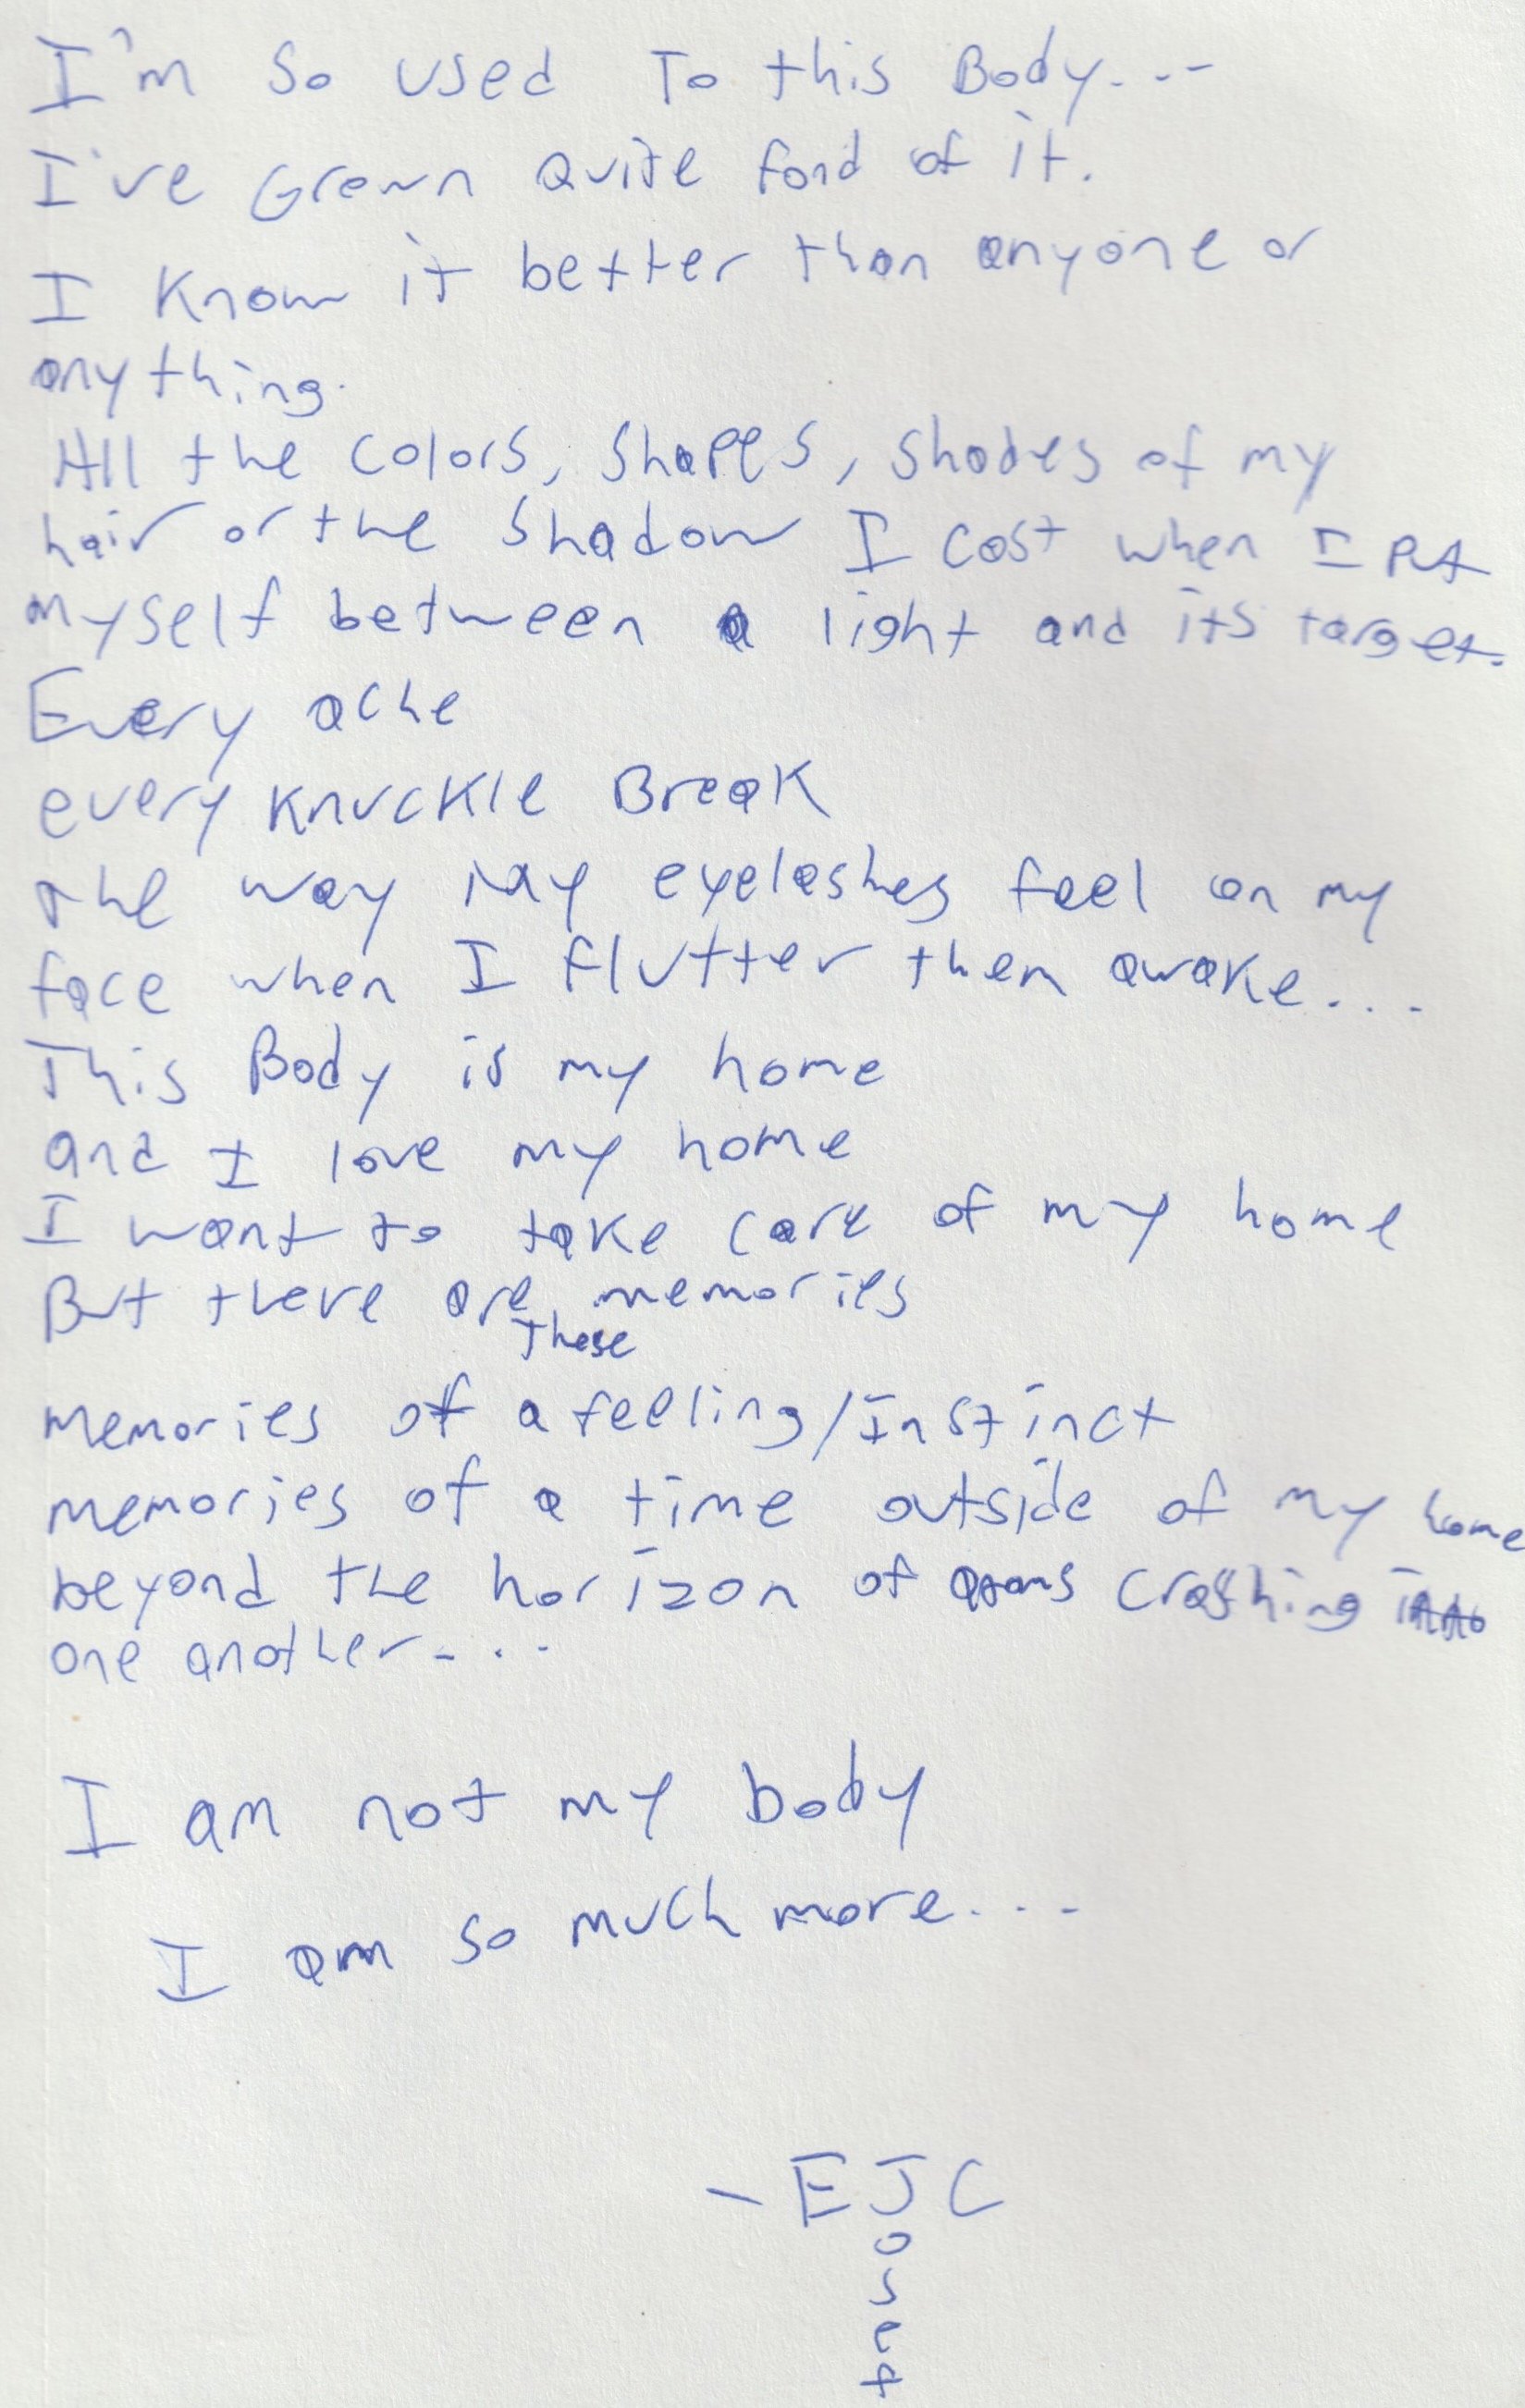 I'm so used To this Body...
I've Grown Quite fond of it.
I Know it better than anyone or
anything.
All the colors, shapes, shades of my
hair or the shadow I cast when I put
myself between a light and its target.
Every ache
every knuckle Break
the way my eyelashes feel on my
face when I flutter them awake...
This Body is my home
and I love my home
I want to take care of my home
But there are these memories
memories of a feeling/Instinct
memories of a time outside of my home
beyond the horizon of atoms crashing into
one another....
I am not my body
I am so much more....
- EJC
o
s
e
f